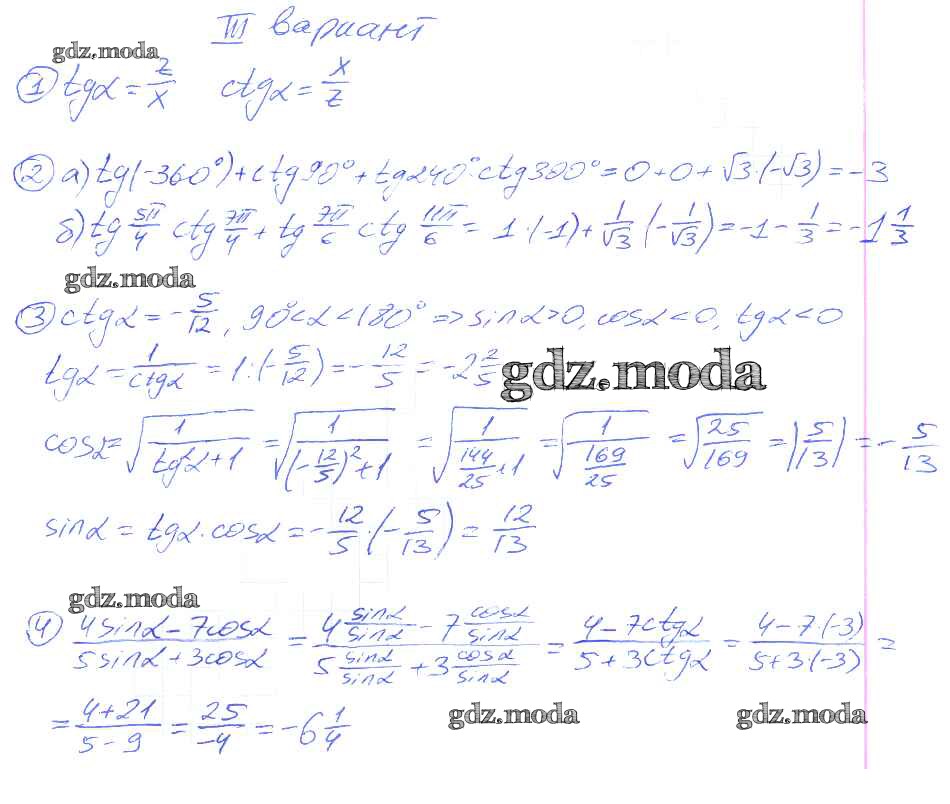 III вариант
gdz.moda
① tgα = z/x ctgα = x/z
② а) tg(-360°) + ctg90° + tg240°·ctg300° = 0 + 0 + √3·(-√3) = -3
б) tg 5π/4 ctg 7π/4 + tg 7π/6 ctg 11π/6 = 1·(-1) + 1/√3 (-1/√3) = -1 - 1/3 = -1 1/3
gdz.moda
③ ctgα = -5/12, 90°<α<180° => sinα>0, cosα<0, tgα<0
tgα = 1/ctgα = 1:(-5/12) = -12/5 = -2 2/5
gdz.moda
cosα = √(1/(tg²α+1)) = √(1/((-12/5)²+1)) = √(1/(144/25+1)) = √(1/(169/25)) = √(25/169) = |5/13| = -5/13
sinα = tgα·cosα = -12/5·(-5/13) = 12/13
gdz.moda
④ (4sinα-7cosα)/(5sinα+3cosα) = (4 sinα/sinα - 7 cosα/sinα)/(5 sinα/sinα + 3 cosα/sinα) = (4-7ctgα)/(5+3ctgα) = (4-7·(-3))/(5+3·(-3)) =
= (4+21)/(5-9) = 25/-4 = -6 1/4
gdz.moda gdz.moda